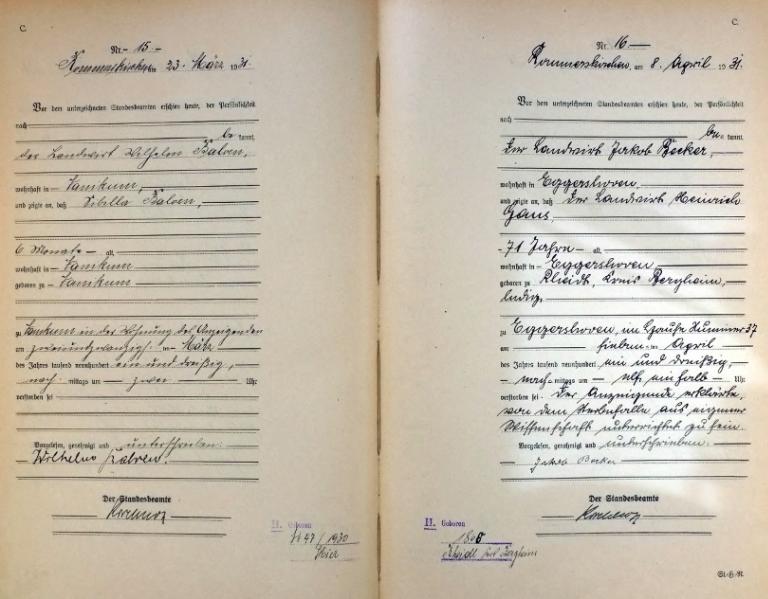 C.
Nr. 15.
Rommerskirchen, am 23. März 1931
Vor dem unterzeichneten Standesbeamten erschien heute, der Persönlichkeit
nach
be kannt,
der Landwirt Wilhelm
wohnhaft in Vanikum,
und zeigte an, daß Sibilla
6 Monate alt,
wohnhaft in Vanikum
geboren zu Vanikum
zu Vanikum in der Wohnung des Anzeigenden
am zweiundzwanzigsten März
des Jahres tausend neunhundert ein und dreißig,
nach mittags um zwei Uhr
verstorben sei
Vorgelesen, genehmigt und unterschrieben:
Wilhelm
Der Standesbeamte
II. Geboren
Nr 47/1930
hier
C.
Nr. 16
Rommerskirchen, am 8. April 1931.
Vor dem unterzeichneten Standesbeamten erschien heute, der Persönlichkeit
nach
be kannt,
der Landwirt Jakob Becker,
wohnhaft in Eggershoven,
und zeigte an, daß der Landwirt Heinrich
Gaus,
71 Jahre alt,
wohnhaft in Eggershoven
geboren zu Rheidt, Kreis Bergheim,
ledig,
zu Eggershoven, im Hause Nummer 37
am sieben ten April
des Jahres tausend neunhundert ein und dreißig,
nach mittags um elf einhalb Uhr
verstorben sei. Der Anzeigende erklärte,
von dem Sterbefalle aus eigener
Wissenschaft unterrichtet zu sein.
Vorgelesen, genehmigt und unterschrieben.
Jakob Becker
Der Standesbeamte
II. Geboren
Rheidt Bergheim
St.-H.-R.